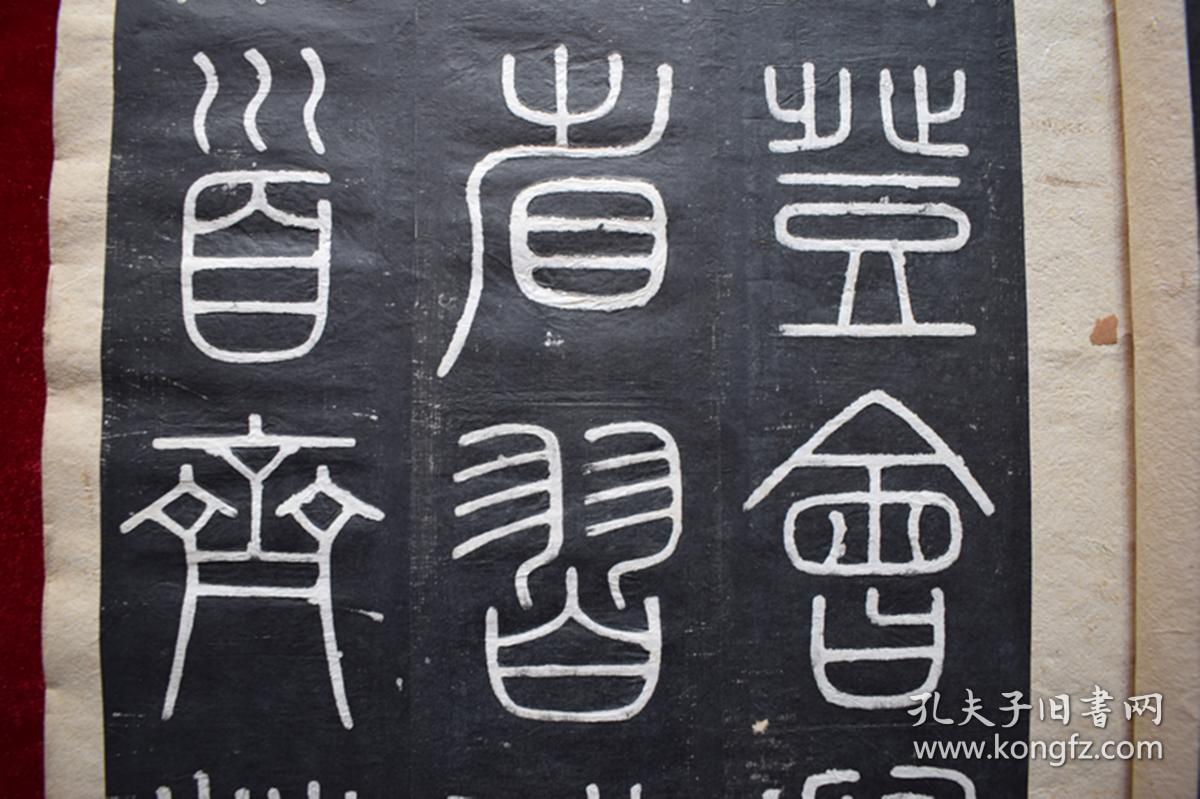 登會
省習
首齊
孔夫子旧書网
www.kongfz.com